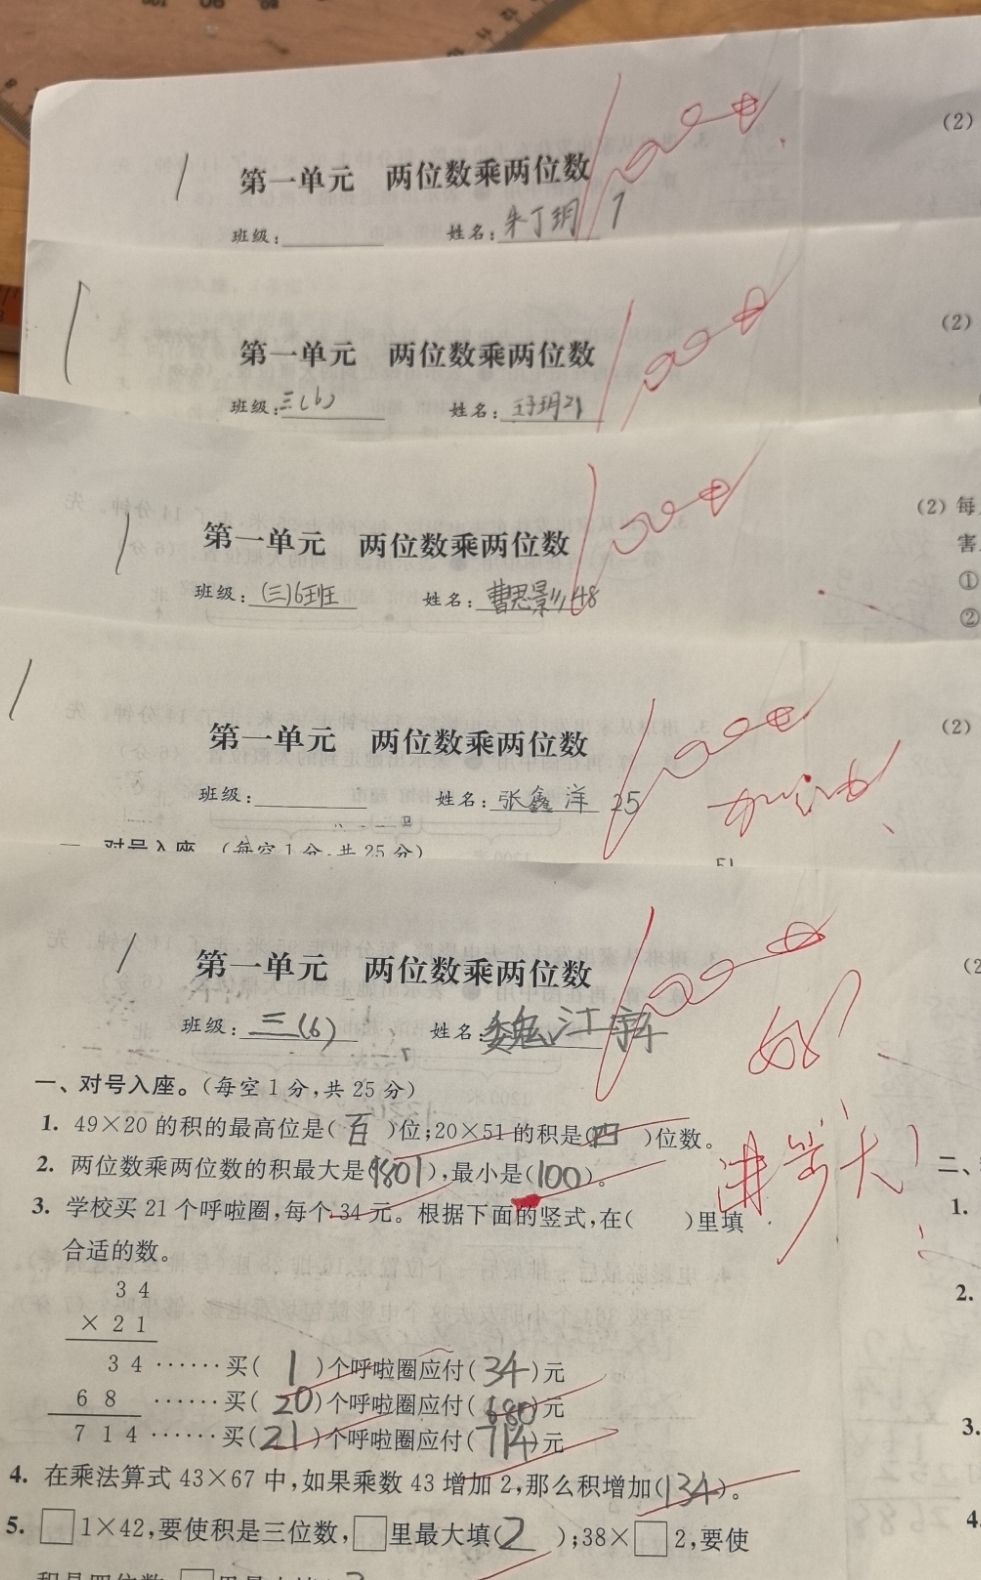 (2)
第一单元 两位数乘两位数
班级: 姓名:朱丁玥 7
(2)
第一单元 两位数乘两位数
班级:三(6) 姓名: 21
第一单元 两位数乘两位数
班级:(三)6班 姓名:曹思影 48
(2)每
害
①
②
第一单元 两位数乘两位数
班级: 姓名:张鑫洋 25
(2)
加油
一、对号入座。(每空1分,共25分)
第一单元 两位数乘两位数
班级:三(6) 姓名:魏江
(2
进步大!
一、对号入座。(每空1分,共25分)
1. 49×20的积的最高位是(百)位;20×51的积是(四)位数。
2. 两位数乘两位数的积最大是(9801),最小是(100)。
3. 学校买21个呼啦圈,每个34元。根据下面的竖式,在( )里填
合适的数。
34
×21
34······买(1)个呼啦圈应付(34)元
68 ······买(20)个呼啦圈应付(680)元
714······买(21)个呼啦圈应付(714)元
4. 在乘法算式43×67中,如果乘数43增加2,那么积增加(134)。
5. □1×42,要使积是三位数,□里最大填(2);38×□2,要使
二、
1.
2.
3.
4.